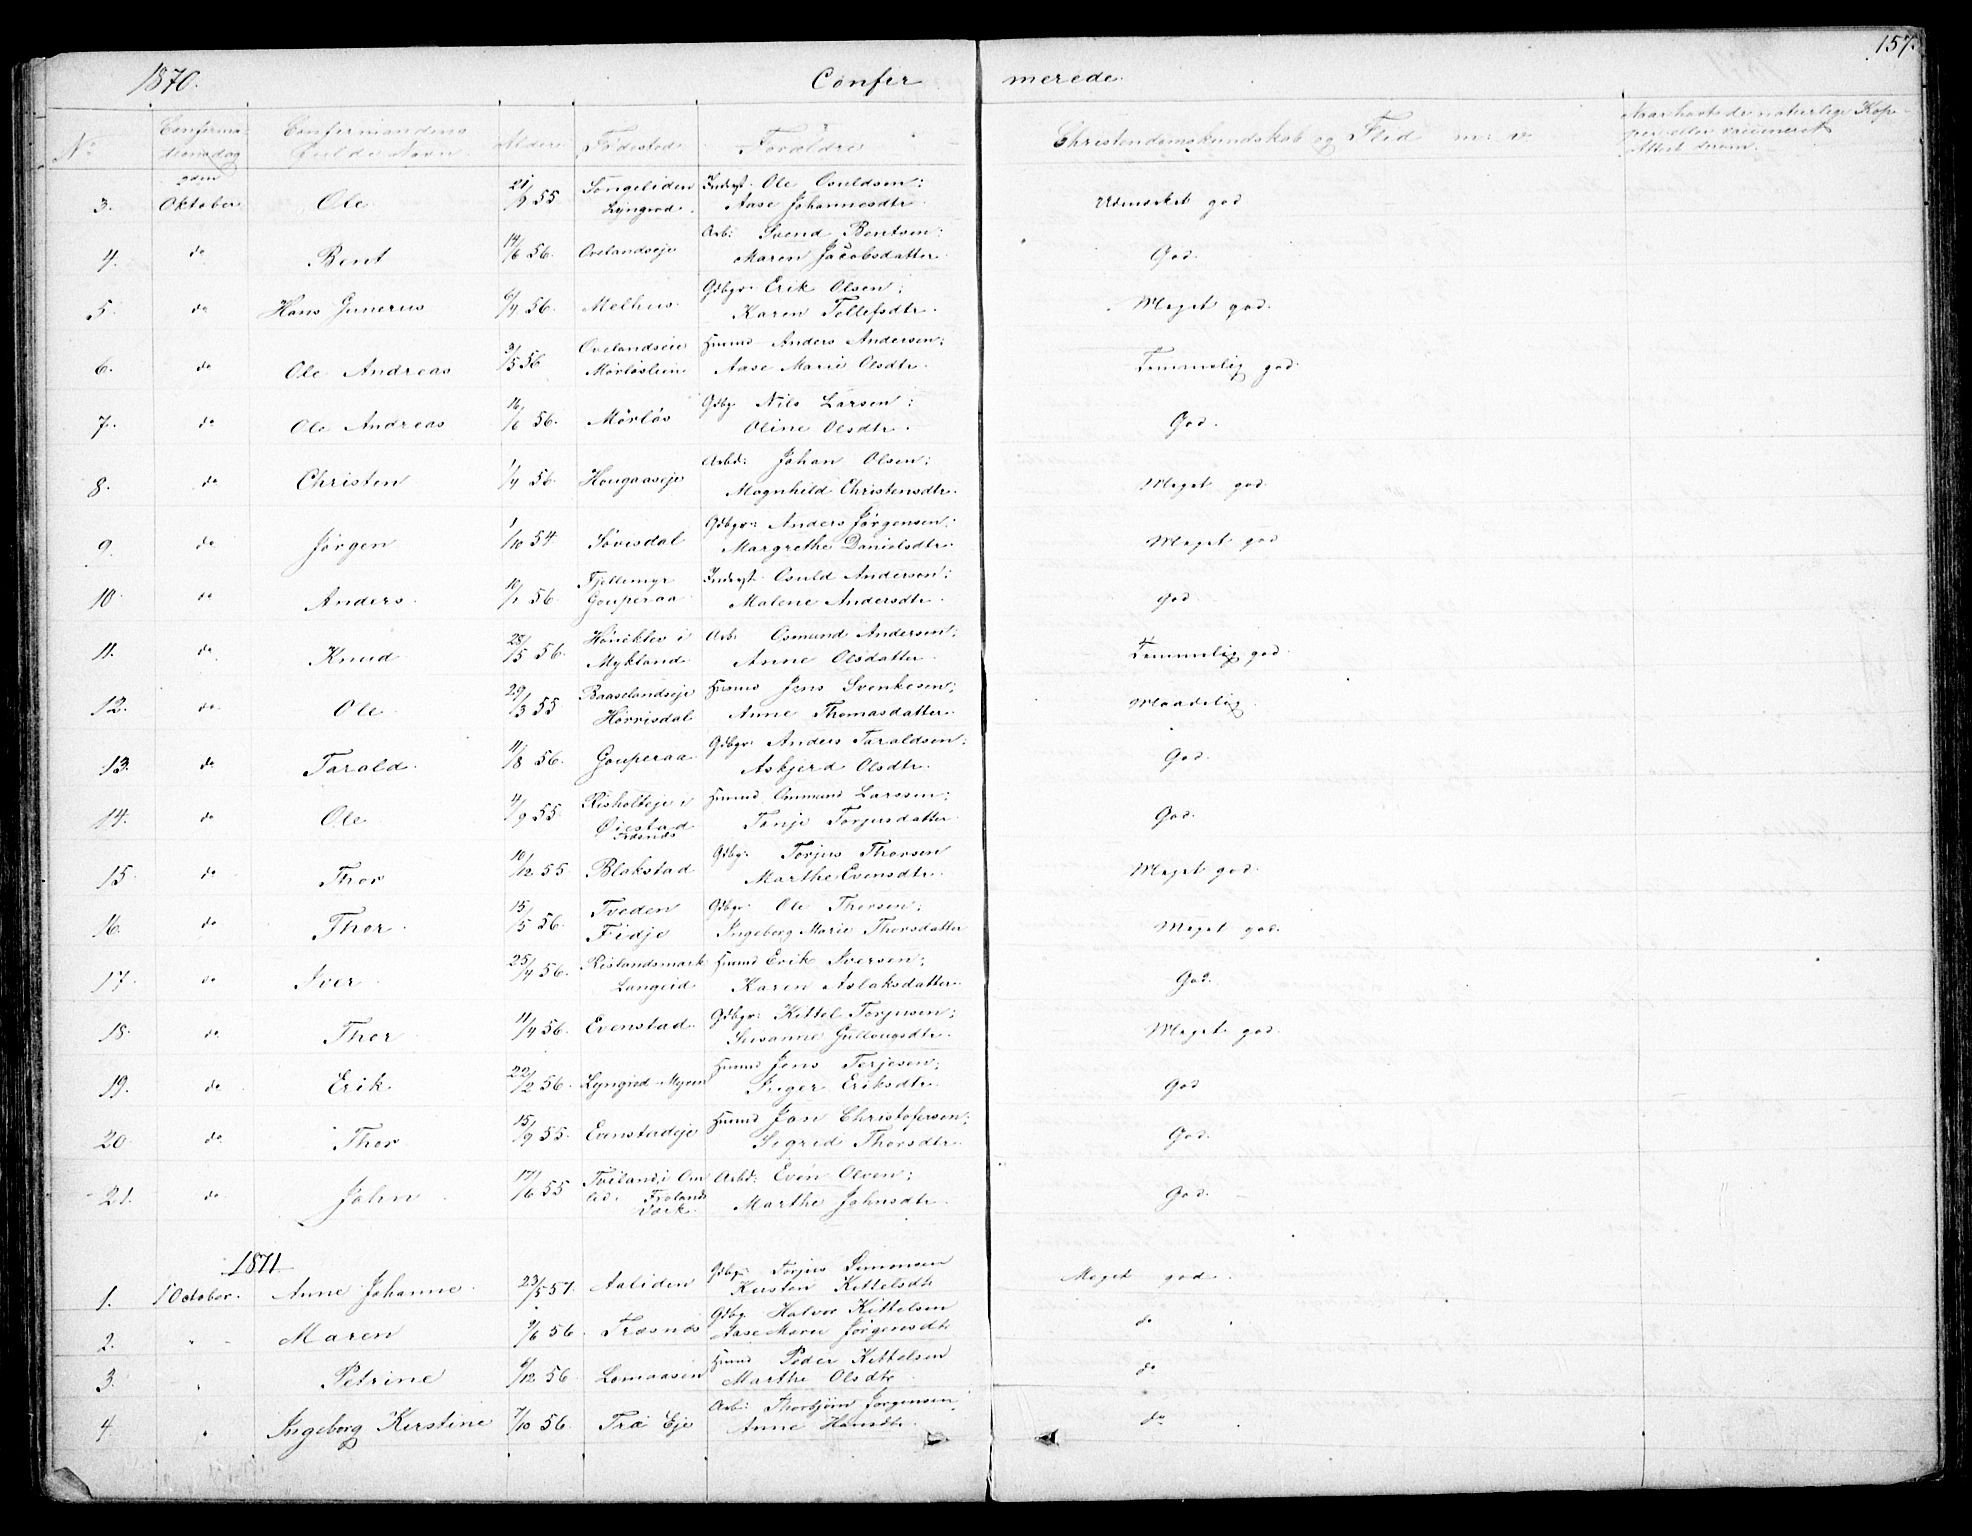 157.
1870. Confir merede.
No Confirmationsdag Confirmandens fulde Navn Alder Fødested Forældre Christendomskundskab og Flid m. v. Naar havt de naturlige Kopper eller vaccineret Attest derom.
3. 2den Oktober Ole 21/9 55 Songeliden Lyngrod. Inderst. Ole Osuldsen; Aase Johannesdtr. Udmærket god
4. do Bent 14/6 56. Ovelandseje Arb: Svend Bentsen; Maren Jacobsdatter God.
5. do Hans Junerius 6/9 56. Melhus. Gdbgr. Erik Olsen; Karen Tollefsdtr. Meget god.
6. do Ole Andreas 3/5 56 Ovelandseie Mørløsleien Husmd Anders Andersen; Aase Marie Olsdtr. Temmelig god.
7. do Ole Andreas 16/6 56. Mørløs Gdbg. Nils Larsen; Oline Olsdtr. God.
8. do Christen 1/4 56. Hougaaseje Arbd: Johan Olsen; Magnhild Christensdtr. Meget god.
9. do Jørgen 1/10 54 Søvisdal Gdbgr: Anders Jørgensen; Margrethe Danielsdtr. Meget god
10. do Anders. 10/1 56. Fjellemyr Gouperaa Inderst. Osuld Andersen; Malene Andersdtr. God.
11. do Knud 28/5 56. Høneklev i Mykland. Arb: Osmund Andersen; Anne Olsdatter. Temmelig god.
12. do Ole 29/3 55 Baaselandseje Hørrisdal Husmd Jens Svenkesen; Anne Thomasdatter. Maadelig.
13. do Tarald. 11/8 56. Gouperaa Gdbgr: Anders Taraldsen; Askjerd Olsdtr. God.
14. do Ole 4/9 55. Risholteje i Øiestad Husmd. Ommund Larssen; Tonje Torjusdatter. God.
15. do Thor 10/12 55 Blakstad Gdbgr. Torjus Thorsen Marthe Evensdtr. Meget god.
16. do Thor. 15/5 56. Tveden Fidje Gdbgr. Ole Thorsen; Ingeborg Marie Thorsdatter Meget god.
17. do Iver. 25/4 56. Rislandsmark Langeid Husmd Erik Iversen; Karen Aslaksdatter. God.
18. do Thor 11/4 56. Evenstad. Gdbgr: Kittel Torjusen; Susanne Gullougsdtr. Meget god.
19. do Erik. 22/2 56. Lyngrod-Myren Husmd Jens Terjesen; Inger Eriksdtr. God
20. do Thor 15/9 55. Evenstadeje Husmd Jan Christofersen; Sigrid Thorsdtr. God.
21. do John 17/6 55 Tveland i Omlid. Frolands Værk. Arbd: Even Olsen; Marthe Johnsdtr. God.
1871
1. 1 October. Anne Johanne. 23/5 57. Aaliden Gdbgr. Torjus Simonsen Kirsten Kittelsdtr Meget god.
2. " Maren 9/6 56. Træsnæs Gdbg. Halvor Kittelsen Aase Marie Jørgensdtr do
3. " Petrine 6/12 56. Lomaasen Husmd Peder Kittelsen Marthe Olsdtr do
4. " Ingeborg Kirstine 7/10 56. Træ Eje Arb: Thorbjørn Jørgensen; Anne Hansdtr. do